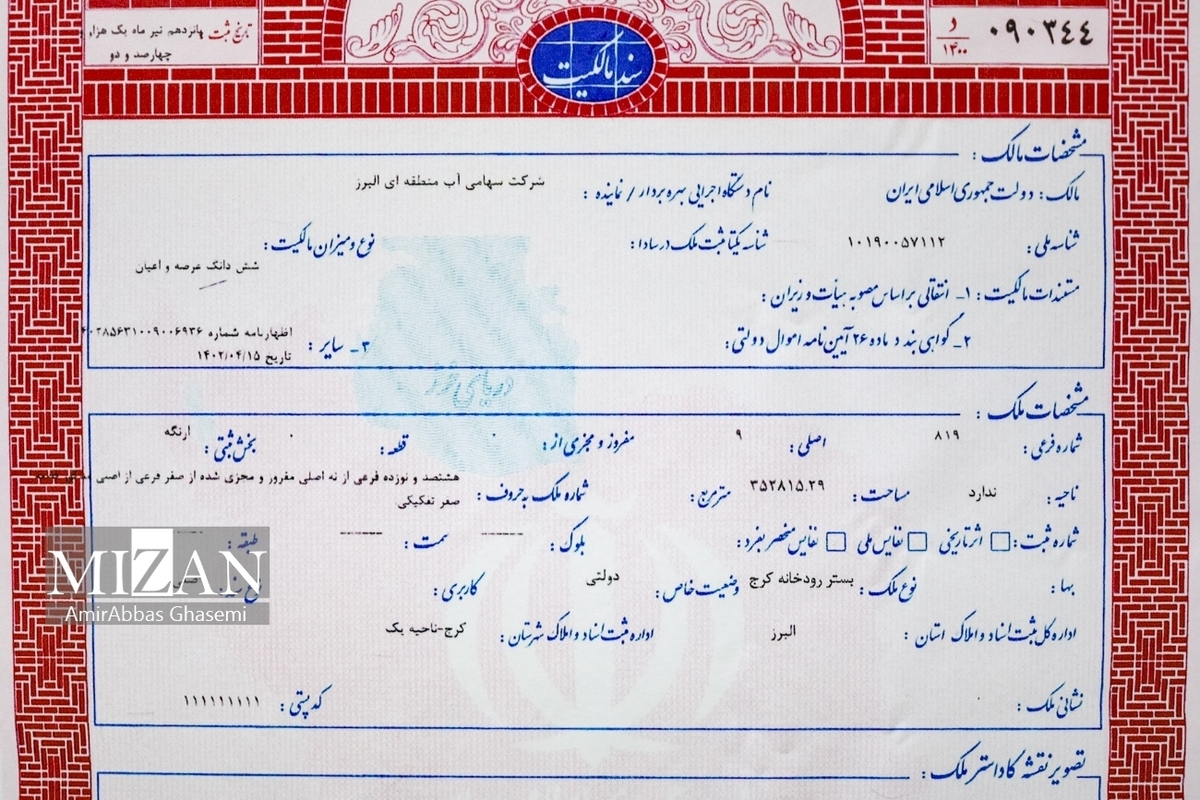 ۰۹۰۳۴۴ د/۱۴۰۰
سند مالکیت
تاریخ ثبت پانزدهم تیر ماه یک هزار
چهارصد و دو
مشخصات مالک :
مالک : دولت جمهوری اسلامی ایران نام دستگاه اجرایی بهره بردار / نماینده : شرکت سهامی آب منطقه ای البرز
شناسه ملی : ۱۰۱۹۰۰۵۷۱۱۲ شناسه یکتا ثبت ملک در سادا : نوع و میزان مالکیت :
شش دانگ عرصه و اعیان
مستندات مالکیت : ۱- انتقالی بر اساس مصوبه هیأت وزیران :
۲- گواهی بند د ماده ۲۶ آیین نامه اموال دولتی : ۳- سایر : اظهارنامه شماره ۶۰۲۸۵۶۳۱۰۰۹۰۰۶۹۳۶
تاریخ ۱۴۰۲/۰۴/۱۵
مشخصات ملک :
شماره فرعی : ۸۱۹ اصلی : ۹ مفروز و مجزی از : ۰ قطعه : ۰ بخش ثبتی : ارنگه
ناحیه : ندارد مساحت : ۳۵۲۸۱۵.۲۹ مترمربع : شماره ملک به حروف : هشتصد و نوزده فرعی از نه اصلی مفروز و مجزی شده از صفر فرعی از اصلی
صفر تفکیکی
شماره ثبت : اثر تاریخی نفایس ملی نفایس منحصر بفرد : بلوک : ----- سمت : ----- طبقه :
بها : نوع ملک : بستر رودخانه کرج وضعیت خاص : دولتی کاربری :
اداره کل ثبت اسناد و املاک استان : البرز اداره ثبت اسناد و املاک شهرستان : کرج-ناحیه یک
نشانی ملک : کد پستی : ۱۱۱۱۱۱۱۱۱۱
تصویر نقشه کاداستر ملک :
MIZAN
AmirAbbas Ghasemi